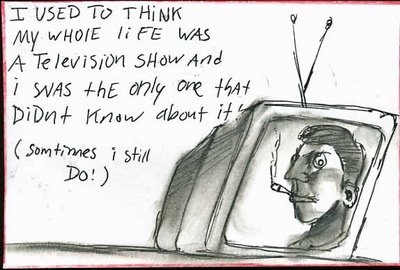 I USED TO THINK
MY WHOLE LIFE WAS
A TELEVISION SHOW AND
i WAS the only one that
DiDnt Know About it!
(somtimes i still
DO!)